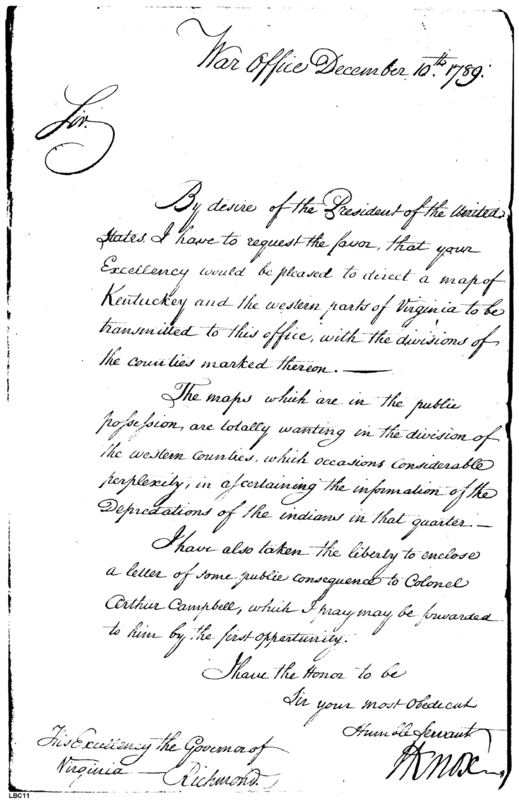 War Office December 10th. 1789.
Sir.
By desire of the President of the United
States, I have to request the favor, that your
Excellency would be pleased to direct a map of
Kentuckey and the western parts of Virginia to be
transmitted to this office, with the divisions of
the counties marked thereon. —
The maps which are in the public
possession, are totally wanting in the division of
the western counties, which occasions considerable
perplexity, in ascertaining the information of the
Depredations of the indians in that quarter. —
I have also taken the liberty to enclose
a letter of some public consequence to Colonel
Arthur Campbell, which I pray may be forwarded
to him by the first oppertunity.
I have the Honor to be
Sir your most Obedient
Humble Servant
HKnox
His Excellency the Governor of
Virginia — Richmond
LBC11